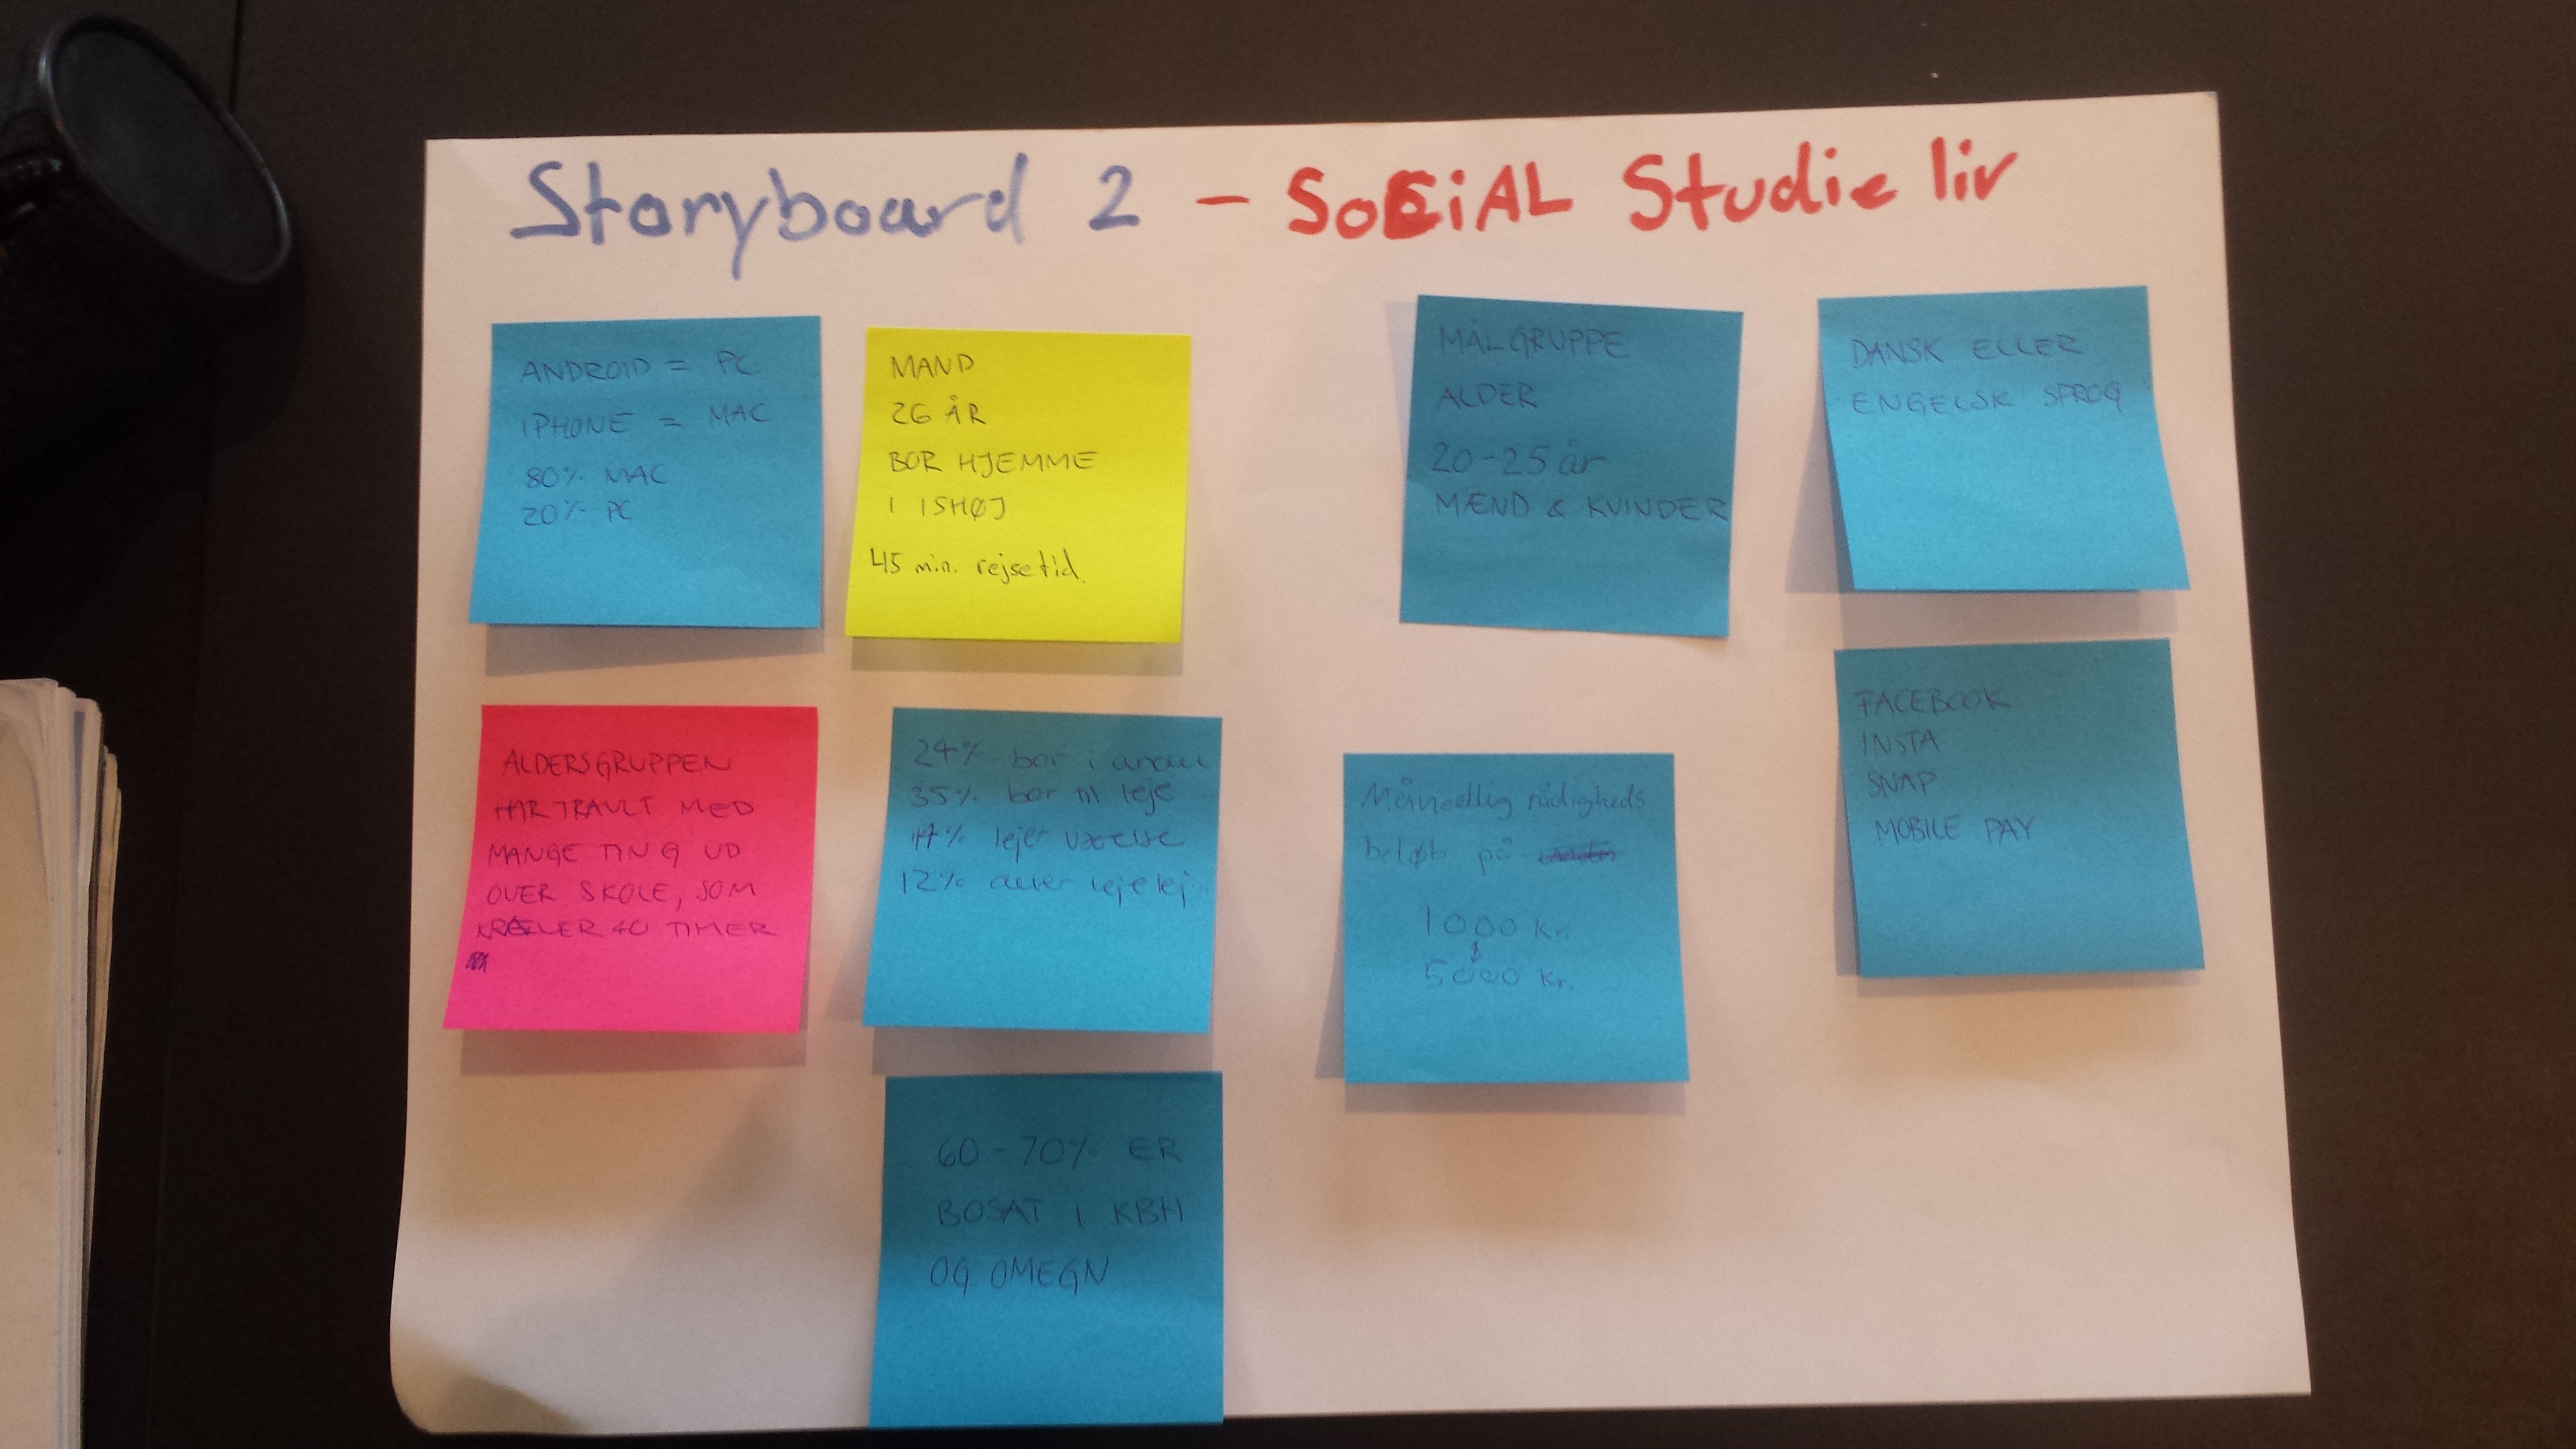 Storyboard 2 - SOCiAL Studie liv
ANDROID = PC
IPHONE = MAC
80% MAC
20% PC
MAND
26 ÅR
BOR HJEMME
I ISHØJ
45 min. rejsetid.
MÅLGRUPPE
ALDER
20-25 år
MÆND & KVINDER
DANSK ELLER
ENGELSK SPROG
ALDERSGRUPPEN
HAR TRAVLT MED
MANGE TING UD
OVER SKOLE, SOM
KRÆVER 40 TIMER
24% bor i
35% bor til leje
lejer værelse
12%
Månedlig rådigheds
beløb på
1000 kr.
5000 kr.
FACEBOOK
INSTA
SNAP
MOBILE PAY
60-70% ER
BOSAT I KBH
OG OMEGN